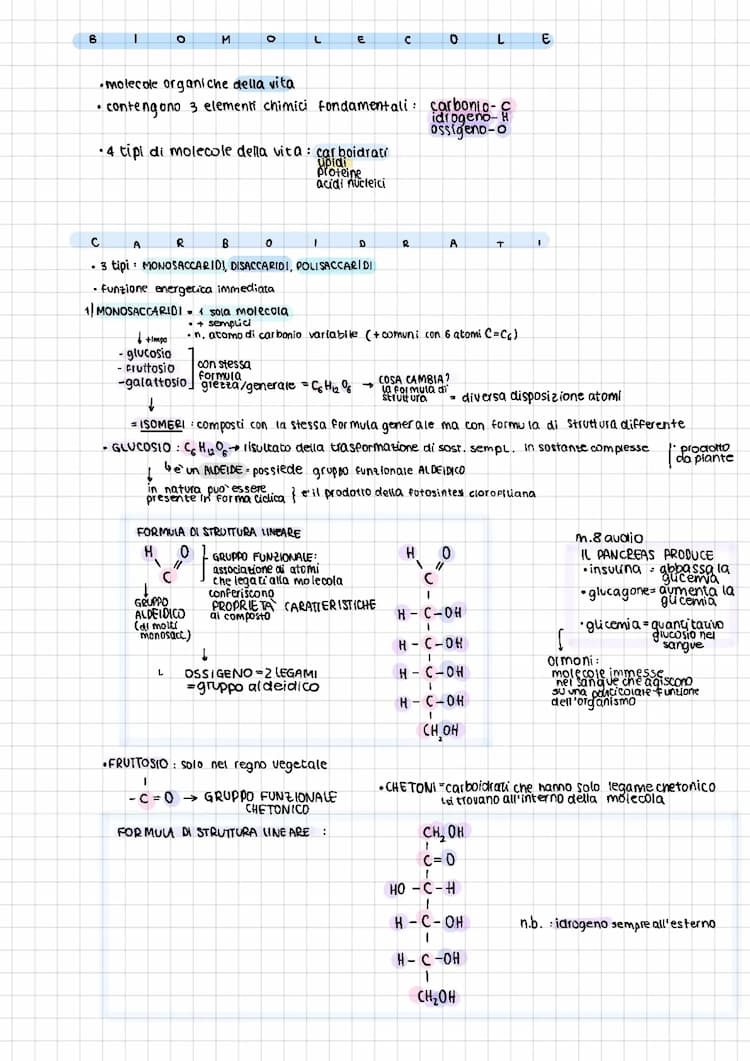 BIOMOLECOLE
•molecole organiche della vita
• contengono 3 elementi chimici fondamentali: carbonio-C
idrogeno-H
ossigeno-O
•4 tipi di molecole della vita: carboidrati
lipidi
proteine
acidi nucleici
CARBOIDRATI
• 3 tipi: MONOSACCARIDI, DISACCARIDI, POLISACCARIDI
• funzione energetica immediata
1) MONOSACCARIDI = 1 sola molecola
• + semplici
• n. atomo di carbonio variabile (+comuni con 6 atomi C=C₆)
↓
- glucosio
- fruttosio
-galattosio
con stessa
formula
grezza/generale = C₆H₁₂O₆ → COSA CAMBIA?
la formula di
struttura = diversa disposizione atomi
↓
= ISOMERI: composti con la stessa formula generale ma con formula di struttura differente
• GLUCOSIO: C₆H₁₂O₆→ risultato della trasformazione di sost. sempl. in sostante complesse
• prodotto
da piante
è un ALDEIDE = possiede gruppo funzionale ALDEIDICO
in natura può essere
presente in forma ciclica } è il prodotto della fotosintesi clorofiliana
FORMULA DI STRUTTURA LINEARE
H O
C
↓
GRUPPO
ALDEIDICO
(di molti
monosacc.)
GRUPPO FUNZIONALE:
associazione di atomi
che legati alla molecola
conferiscono
PROPRIETÀ CARATTERISTICHE
al composto
↓
OSSIGENO=2 LEGAMI
=gruppo aldeidico
H O
C
H - C - OH
H - C - OH
H - C - OH
H - C - OH
CH₂OH
m.8 audio
IL PANCREAS PRODUCE
•insulina = abbassa la
glicemia
•glucagone= aumenta la
glicemia
•glicemia=quantitativo
glucosio nel
sangue
ormoni:
molecole immesse
nel sangue che agiscono
su una particolare funzione
dell'organismo
•FRUTTOSIO: solo nel regno vegetale
- C = O → GRUPPO FUNZIONALE
CHETONICO
•CHETONI=carboidrati che hanno solo legame chetonico
si trovano all'interno della molecola
FORMULA DI STRUTTURA LINEARE :
CH₂OH
C=O
HO - C - H
H - C - OH
H - C - OH
CH₂OH
n.b. : idrogeno sempre all'esterno